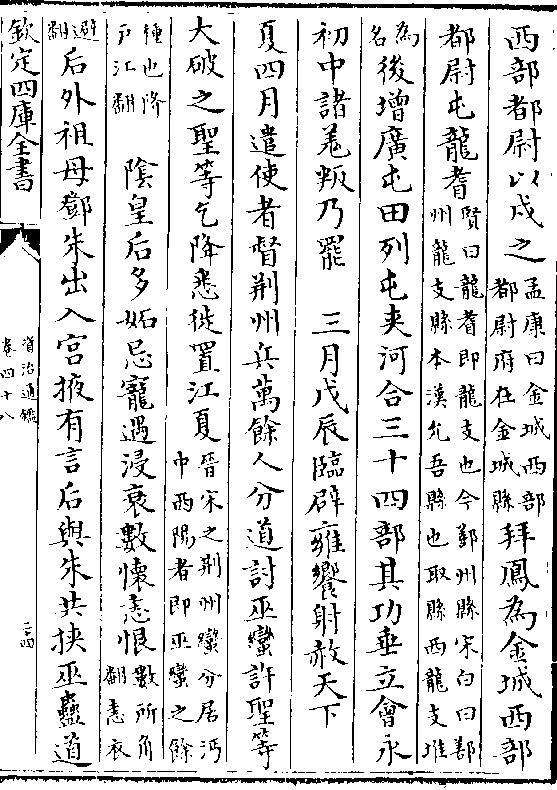 西部都尉以戍之孟康曰金城西部都尉府在金城縣拜鳳為金城西部
都尉屯龍耆賢曰龍耆即龍支也今鄯州縣宋白曰鄯州龍支縣本漢允吾縣也取縣西龍支堆
為名後增廣屯田列屯夾河合三十四部其功垂立會永
初中諸羌叛乃罷　三月戊辰臨辟雍饗射赦天下
夏四月遣使者督荆州兵萬餘人分道討巫蠻許聖等
大破之聖等乞降悉徙置江夏晉宋之荆州蠻分居沔中西陽者即巫蠻之餘
種也降户江翻　陰皇后多妬忌寵遇浸衰數懷恚恨數所角翻恚衣
避翻后外祖母鄧朱出入宫掖有言后與朱共挾巫蠱道
欽定四庫全書
資治通鑑
卷四十八
二四